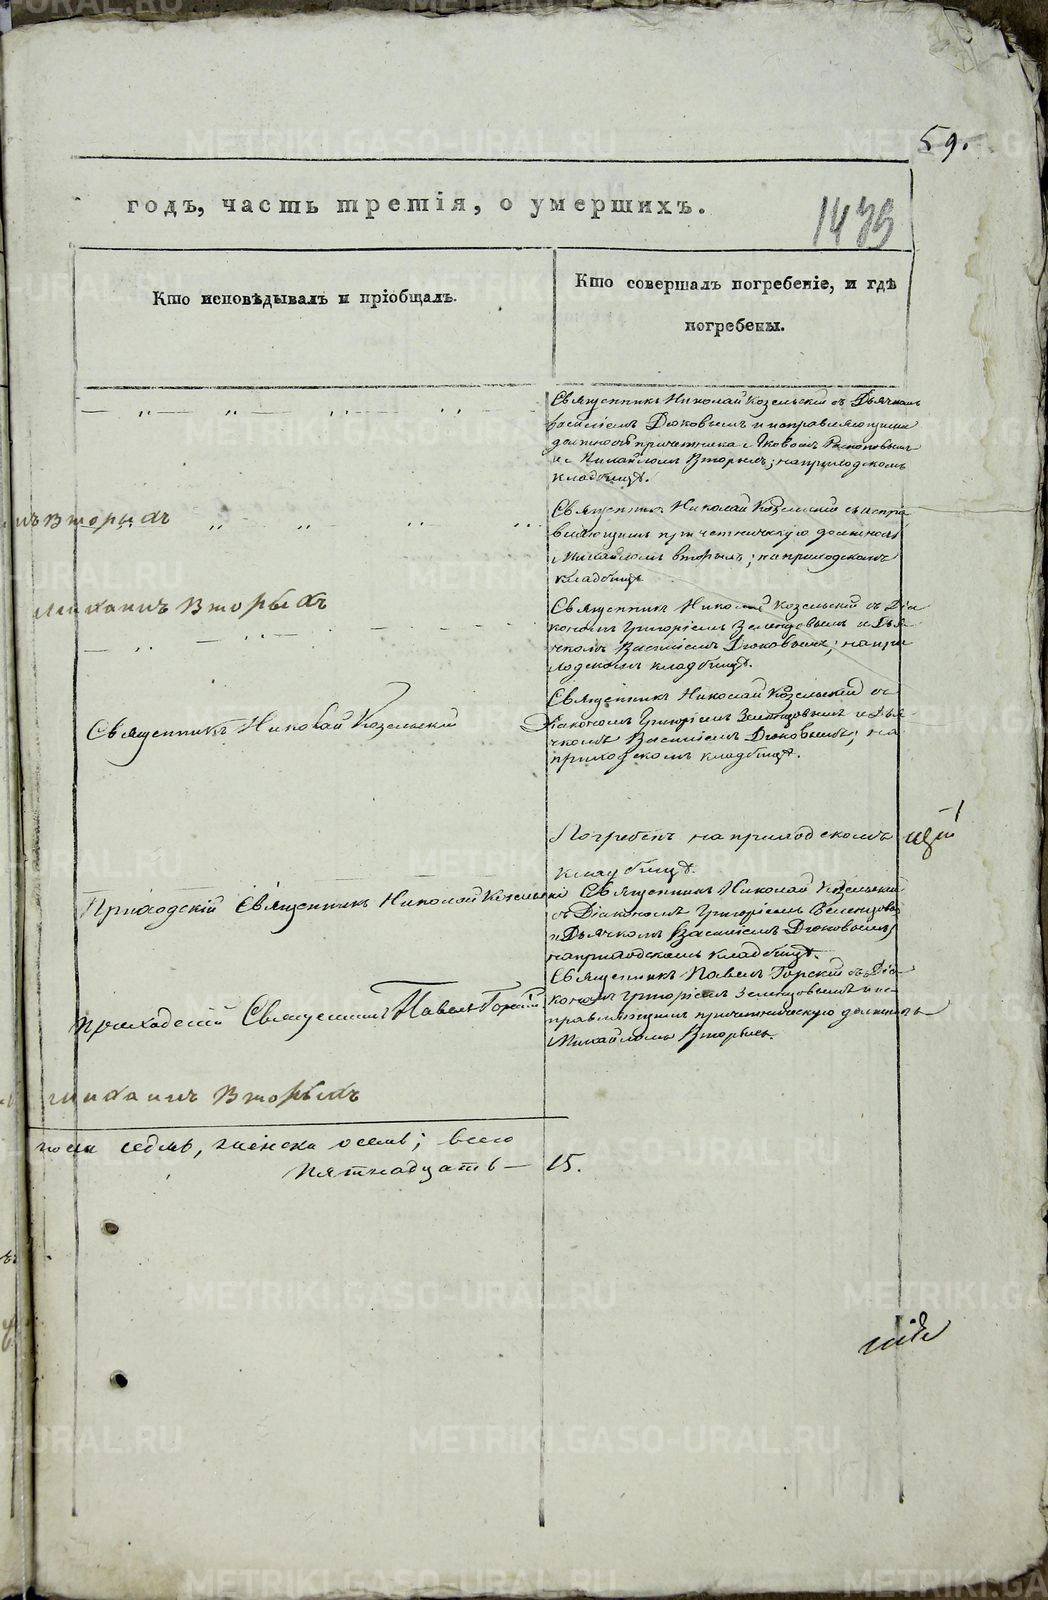 59.
годъ, часть третія, о умершихъ.
1435
Кто исповѣдывалъ и пріобщалъ.
Кто совершалъ погребеніе, и гдѣ
погребены.
Священникъ Николай Козельскій съ Дьячкомъ
Василіемъ Дюковымъ и исправляющими
должность причетника
и Михайломъ Вторымъ; на приходскомъ
кладбищѣ.
Вторыхъ
Священникъ Николай Козельскій съ испра
вляющимъ причетническую должность
Михайломъ Вторымъ; на приходскомъ
кладбищѣ
Михаилъ Вторыхъ
Священникъ Николай Козельскій съ Діа
кономъ Григоріемъ Зеленцовымъ и Дья
чкомъ Василіемъ Дюковымъ; на при
ходскомъ кладбищѣ.
Священникъ Николай Козельскій
Священникъ Николай Козельскій съ
Діакономъ Григоріемъ Зеленцовымъ и Дья
чкомъ Василіемъ Дюковымъ; на
приходскомъ кладбищѣ.
Погребенъ на приходскомъ
кладбищѣ.
Приходскій Священникъ Николай Козельскій
Священникъ Николай Козельскій
съ Діакономъ Григоріемъ Зеленцовымъ
и Дьячкомъ Василіемъ Дюковымъ,
на приходскомъ кладбищѣ.
Приходскій Священникъ Павелъ Горскій
Священникъ Павелъ Горскій съ Діа
кономъ Григоріемъ Зеленцовымъ и ис
правляющимъ причетническую должность
Михайломъ Вторымъ.
Михаилъ Вторыхъ
пола седмь, женска осемь; всего
пятнадцать — 15.
METRIKI.GASO-URAL.RU